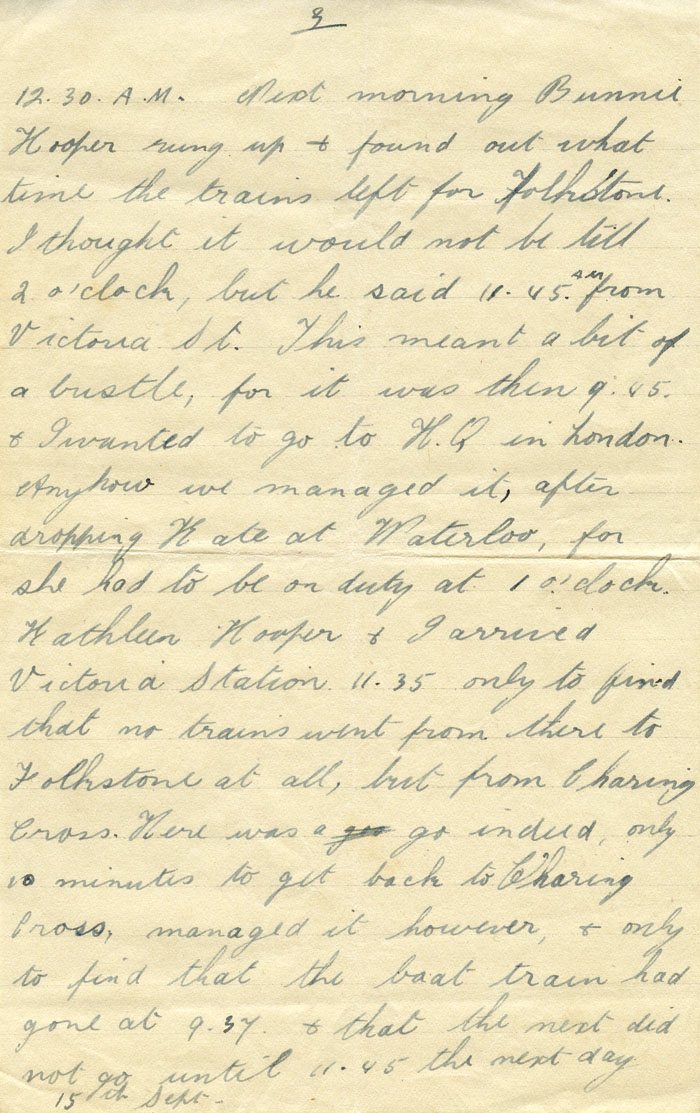 3
12.30. A.M. Next morning Bunnie
Hooper rung up & found out what
time the trains left for Folkstone.
I thought it would not be till
2 o'clock, but he said 11.45. am from
Victoria St. This meant a bit of
a bustle, for it was then 9.45.
& I wanted to go to H.Q in London.
Anyhow we managed it, after
dropping Kate at Waterloo, for
she had to be on duty at 1 o'clock.
Kathleen Hooper & I arrived
Victoria Station 11.35 only to find
that no trains went from there to
Folkstone at all, but from Charing
Cross. Here was a goo go indeed, only
10 minutes to get back to Charing
Cross, managed it however, & only
to find that the boat train had
gone at 9.37. & that the next did
not go until 11.45 the next day
15th Sept.